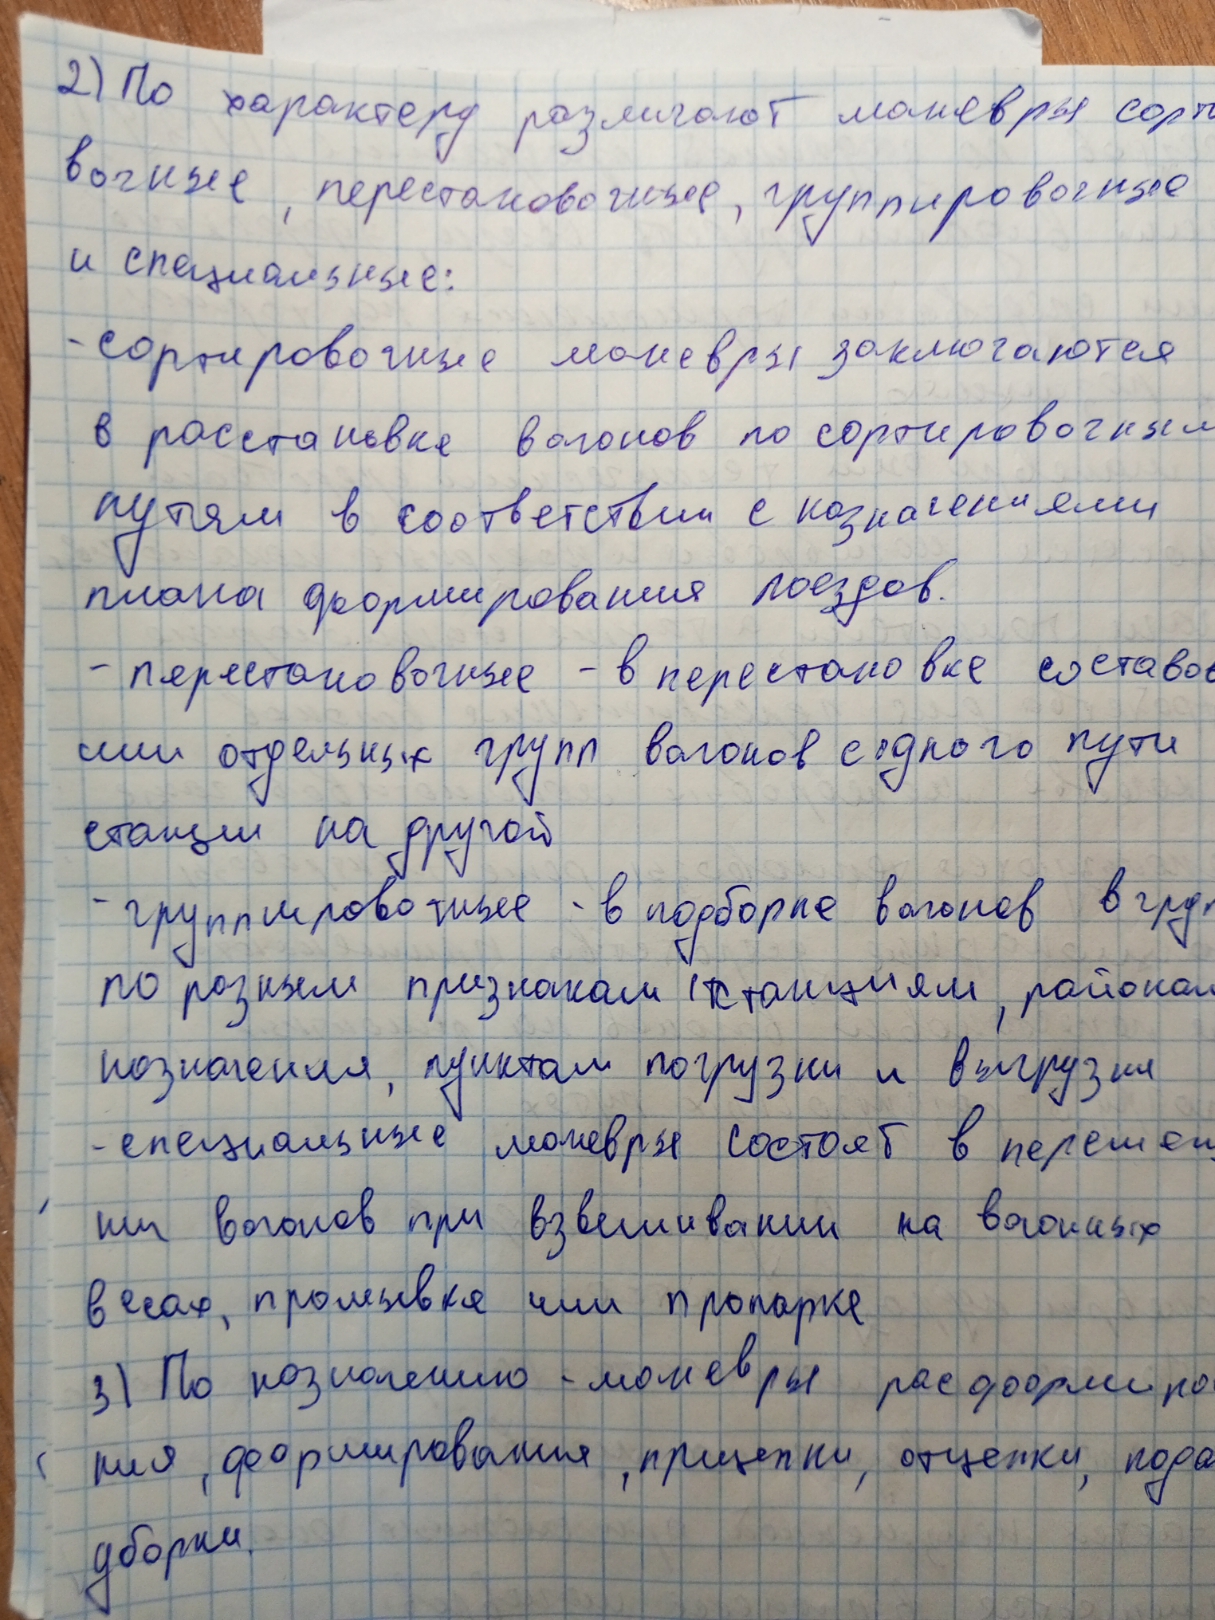 2) По характеру различают маневры сорти
вочные, перестановочные, группировочные
и специальные:
- сортировочные маневры заключаются
в расстановке вагонов по сортировочным
путям в соответствии с назначениями
плана формирования поездов.
- перестановочные - в перестановке составов
или отдельных групп вагонов с одного пути
станции на другой
- группировочные - в подборке вагонов в груп
по разным признакам станциям, районам
назначения, пунктам погрузки и выгрузки
- специальные маневры состоят в перемещ
нии вагонов при взвешивании на вагонных
весах, промывке или пропарке
3) По назначению - маневры расформиров
ния, формирования, прицепки, отцепки, пода
уборки.